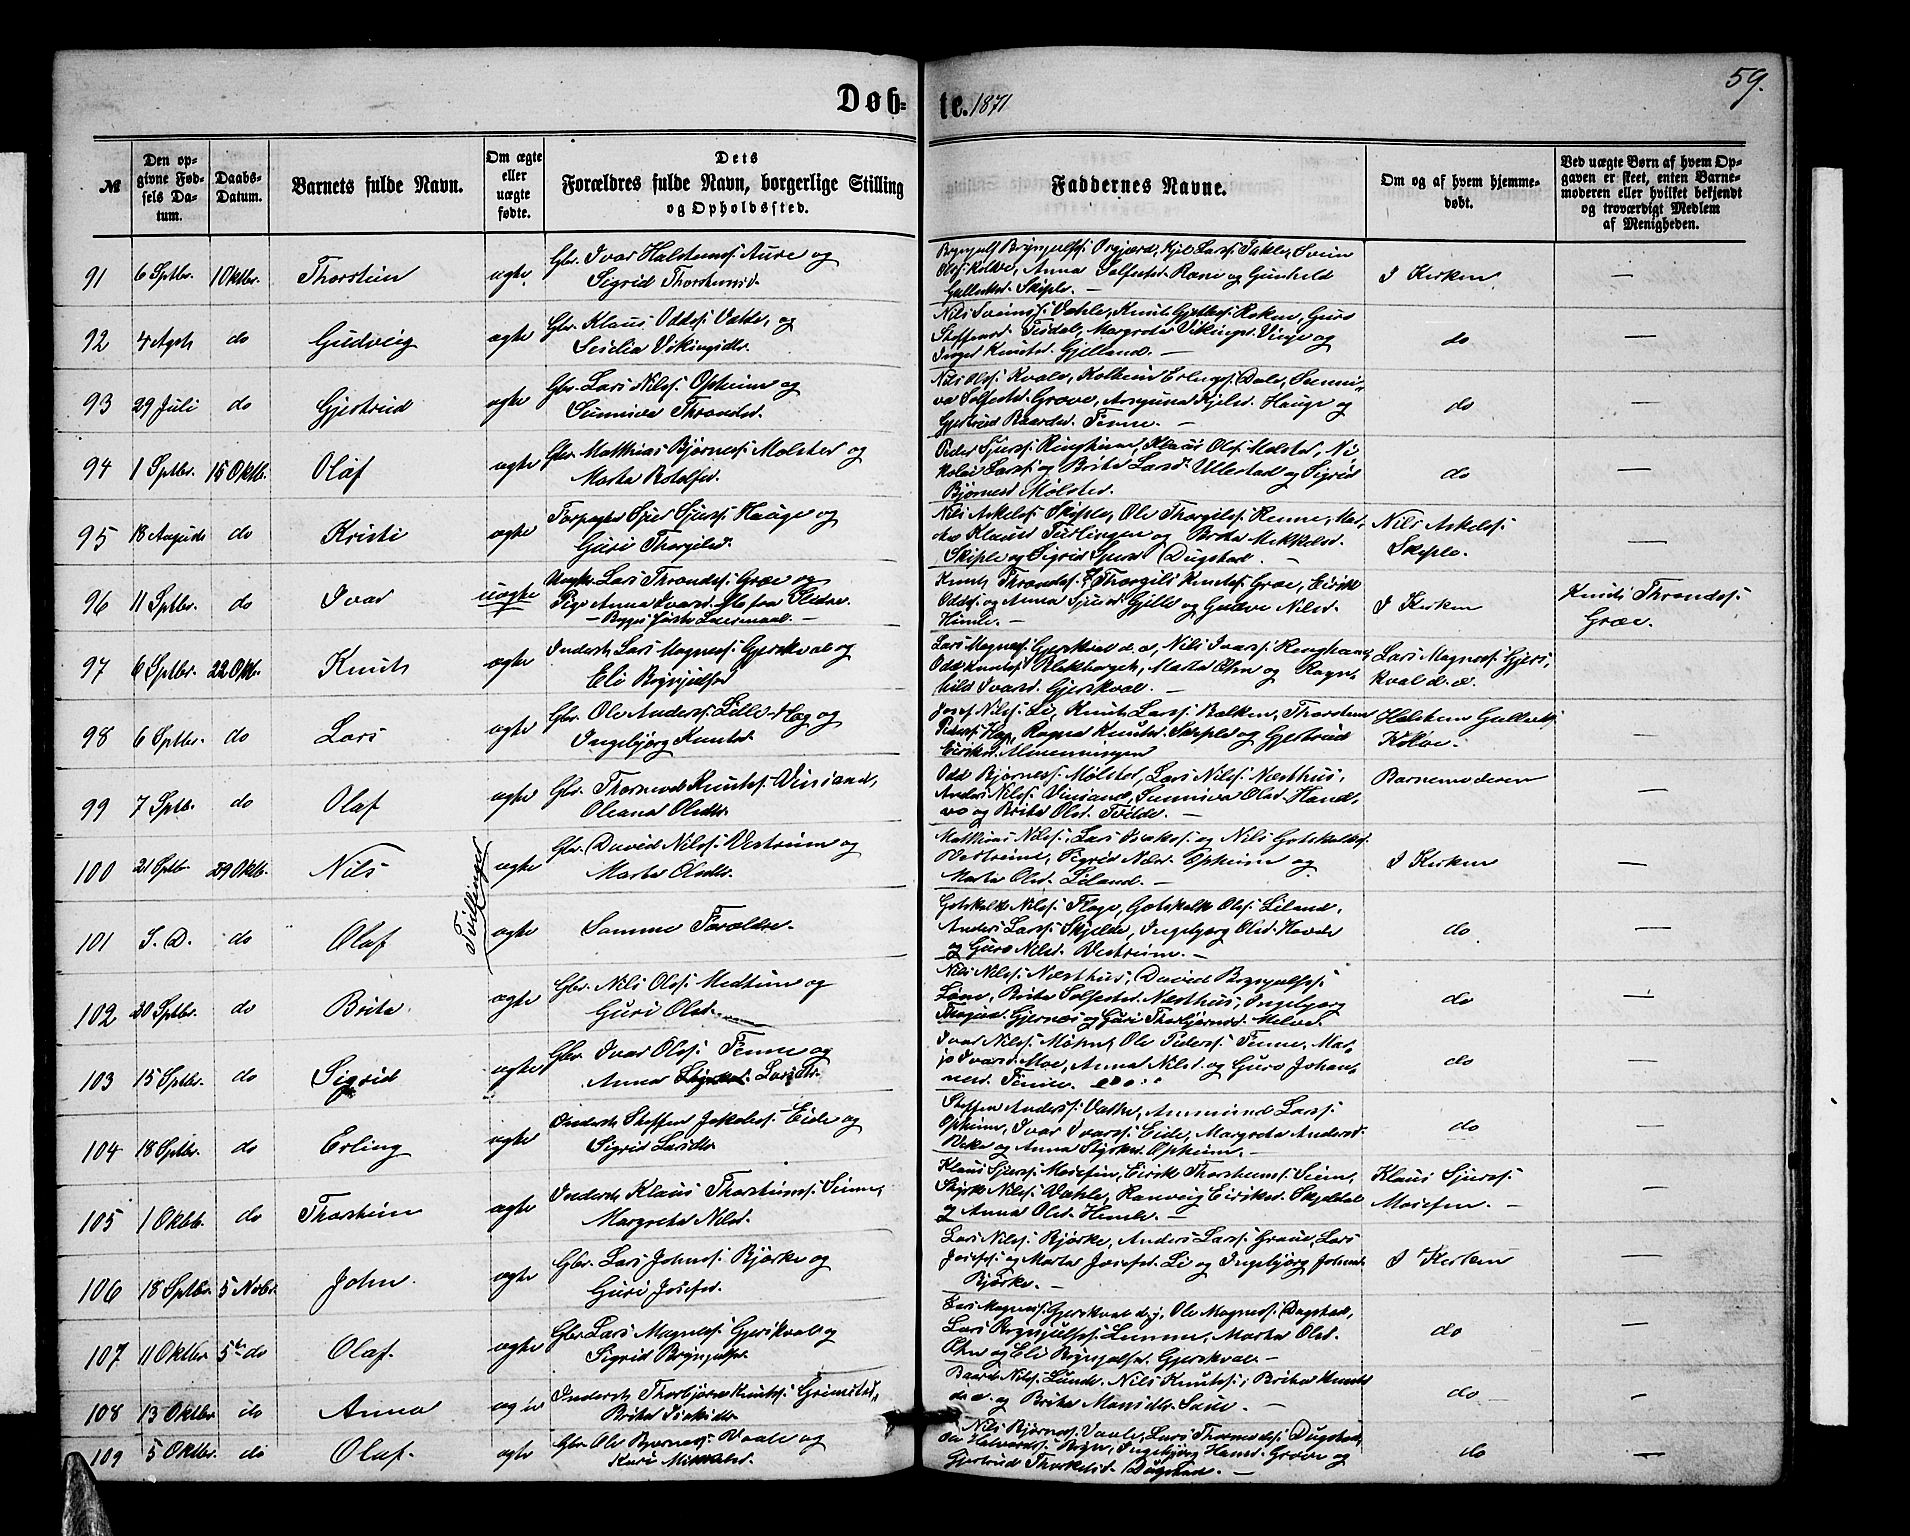 59.
Døb-te. 1871
№
Den opgivne Fødsels Datum.
Daabs-Datum.
Barnets fulde Navn.
Om ægte eller uægte fødte.
Dets Forældres fulde Navn, borgerlige Stilling og Opholdssted.
Faddernes Navne.
Om og af hvem hjemmedøbt.
Ved uægte Børn af hvem Opgaven er skeet, enten Barnemoderen eller hvilket bekjendt og troværdigt Medlem af Menigheden.
91 6 Sptbr. 1 Oktbr. Thorstein ægte. Gbr. Ivar Halstenss: Aure og
Sigrid Thorstensd.
Brynjulf Brynjulfss: Kjel Larss: Svein
Anna Rene og Gunhild
Skiple. —
I Kirken —
92 4 Agst do Gudveig ægte Gbr. Klaus Oddss: Væthe, og
Sesilia Vikingsdr.
Nils Sveinss: Væhle, Knut Røken, Guro
Steffensd. Margreta Vikingsd. Vinje og
Inger Knutsd. Gjelland. —
do —
93 29 Juli do Gjertrud ægte Gbr. Lars Nilss: Opheim og
Sunniva Throndsd.
Nils Olss: Kvale, Kolbein Erlings: Dale, Sunni-
va Grove, Hauge og
Gjertrud Baardsd. Finne. —
do —
94 1 Sptbr. 15 Oktbr. Olaf ægte Gbr. Matthias Bjørness: Mølster og
Marta Rotolfsd.
Peder Sjurss: Ringheim, Klaus Olss: Mølster, Ni-
kolai Larss: og Brita Larsd. Ullestad og Sigrid
Bjørnesd Mølster.
do —
95 18 Auguste do Kristi ægte Sjur Sjurss: Hauge og
Guri Thorgilsd.
Nils Askelss: Skiple, Ole Thorgilss: Renne, Mar-
Klausd og Brita Mikkelsd.
Skiple og Sigrid Dugstad. —
Nils Askelss:
Skiple. —
96 11 Sptbr. do Ivar uægte Ungkr. Lars Throndss: Græe og
Pige Anna Ivarsd.
Knut Throndss: Thorgils Knutss: Græe, Eirik
Oddss: og Anna Sjursd Gjelle og Gudve Nilsd.
Himle. —
I Kirken Knut Throndss:
Græe.
97 6 Sptbr. 22 Okt. Knut ægte Inderst Lars Magness: Gjerskval og
Eli Brynjulfsd
Lars Magness: Gjerskval d. æ, Nils Ivarss: Ringheim,
Odd Knutss: Rekkberget, Marta Ohn og Ragn-
hild Ivarsd. Gjerskval. —
Lars Magness: Gjers-
kval d. æ. —
98 6 Sptbr. do Lars ægte Gbr. Ole Anderss: Lille-Høg og
Ingebjørg Knutsd.
Josef Nilss: Li, Knut Larss: Bolken, Thorsten
Pederss: Ragna Knutsd. Skiple og Gjertrud
Eiriksd. Almenningen
Halsten Gulleiks:
Kolve. —
99 7 Sptb. do Olaf ægte Gbr. Thormod Knutss: Vinsand,
Oleana Olsdtr.
Odd Bjørness: Mølster, Lars Nilss: Næsthus,
Anders Nilss: Vinsand, Sunniva Olsd. Hand-
vo og Brita Olsd. Tvilde. —
Barnemoderen —
Tvillinger
100 21 Sptb 29 Oktb. Nils ægte Gbr. David Nilss: Vestrheim og
Marta Olsdtr.
Matthias Nilss: Lars Isakss: og Nils Gotskalkss:
Vestreim, Sigrid Nilsd. Opheim og
Marta Olsd. Leland. —
I Kirken —
101 S. D. do Olaf ægte Samme Forældre.
Gotskalk Nilss: Flage, Gotskalk Olss: Leland,
Anders Larss: Skjelde, Ingebjørg Olsd. Hævle
og Guro Nilsd. Vestreim. —
do —
102 20 Sptbr. do Brita ægte Gbr. Nils Olss: Medhus og
Guri Olsd.
Nils Nilss: Næsthus, David Brynjulfss:
Løne, Brita Næsthus, Ingebjørg
Gjernes og Guri Thorbjørnsd. Melve.
do —
103 15 Sptbr. do Sigrid ægte Gbr. Ivar Olss: Finne og
Anna Larsdtr.
Ivar Nilss: Ole Pederss: Finne, Mar-
Ivarsd. Moe, Anna Nilsd. og Guro Johan-
nesd. Finne.
do —
104 18 Sptbr. do Erling ægte Inderst Steffen Jakobss: Eide og
Sigrid Larsdtr.
Steffen Anderss: Væthe, Ammund Larss:
Opheim, Ivar Ivarss: Eide, Margreta Andersd.
og Anna Styrksd. Opheim. —
do —
105 1 Oktb. do Thorstein ægte Inderst Klaus Thorstenss:
Margreta Nilsd.
Klaus Sjurss: Mosefin, Eirik Thorstenss:
Styrk Nilss: Væhle, Ranveig Eiriksd. Skjeldal
og Anna Olsd. Himle. —
Klaus Sjurss:
Mosefin. — —
106 18 Sptbr. 5 Nvbr. John ægte Gbr. Lars Johnss: Bjørke og
Guri Josefsd.
Lars Nilss: Bjørke, Anders Larss: Lars
Josefss: og Marta Josefsd. Li og Ingebjørg Johnsd.
Bjørke. —
I Kirken —
107 11 Oktbr 5te do Olaf. ægte Gbr. Lars Magness: Gjerskval og
Sigrid Brynjulfsd.
Lars Magness: Gjerskval d. y, Ole Magness: Dugstad,
Lars Brynjulfss: Marta Olsd.
Ohn og Eli Brynjulfsd. Gjerskval —
do —
108 13 Oktbr do Anna ægte Inderst Thorbjørn Knutss: Grimstad,
Brita Isaksdtr
Baard Nilss: Lunde. Nils Knutss: Brita Knutsd
og Brita Monsdtr. —
do —
109 5 Oktbr. do Olaf. ægte Gbr. Ole Bjørness: Vaale og
Kari Mikkelsd.
Nils Bjørness: Vaale, Lars Thormodss: Dugstad,
Ole Halvorss: Ryn, Ingebjørg Hansd. Grove og
Gjertrud Thorkelsd. Dugstad. —
do —